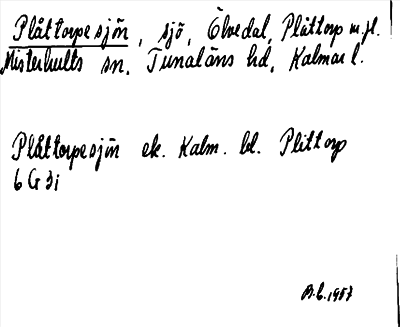 Plåttorpesjön, sjö, Älvedal, Plåttorp m.fl.
Misterhults sn, Tunaläns hd, Kalmar l.
Plåttorpesjön ek. Kalm. bl. Plittorp
6 G 3i
1957